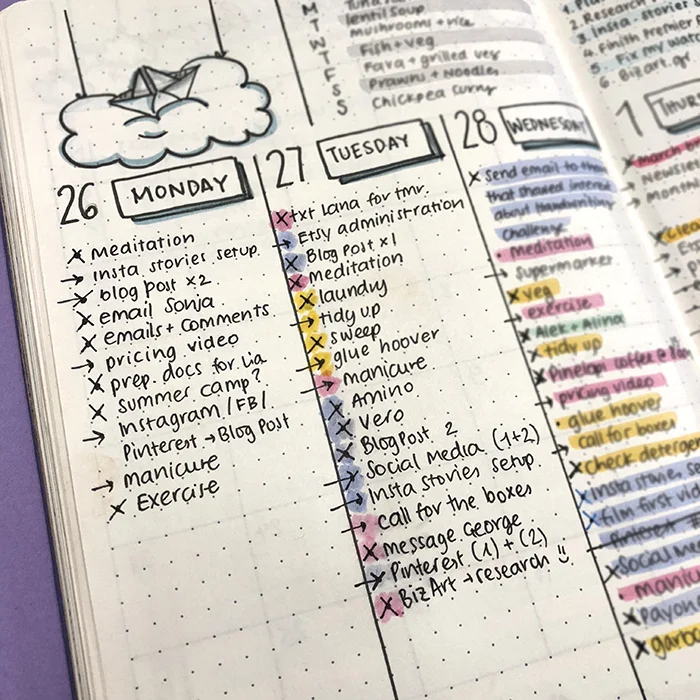 M Tuna
T lentil soup
W mushrooms + rice
T Fish + veg
F Fava + grilled veg
S Prawns + Noodles
S Chickpea curry
2. Research
3. Insta. stories
4. Finish Premier
5. Fix my wat
6. Biz art.
26 MONDAY
× Meditation
→ insta stories setup
blog post ×2
× email Sonja
× emails + comments
→ pricing video
× prep. docs for Lia
× summer camp?
→ Instagram / FB /
Pinterest → Blog Post
→ manicure
× Exercise
27 TUESDAY
× txt Lana for tmr.
→ Etsy administration
× Blog Post ×1
× meditation
× laundry
→ tidy up
× sweep
→ glue hoover
→ manicure
× Amino
× Vero
× Blog Post 2
→ Social Media (1+2)
→ Insta Stories setup.
→ call for the boxes
× message George
Pinterest (1) + (2)
× Biz Art → research
28 WEDNESDAY
× Send email to
that showed interest
about handwriting
challenge
• meditation
→ supermarket
× veg
→ exercise
× Alek + Alina
× tidy up
× Pinelopi coffee @
→ pricing video
• glue hoover
→ call for boxes
× check deterge
× insta stories
× film first vi
Pinterest
× Social M
• manicu
× Payon
× garba
1 THU
× march
→ Newsle
→ month
× clea